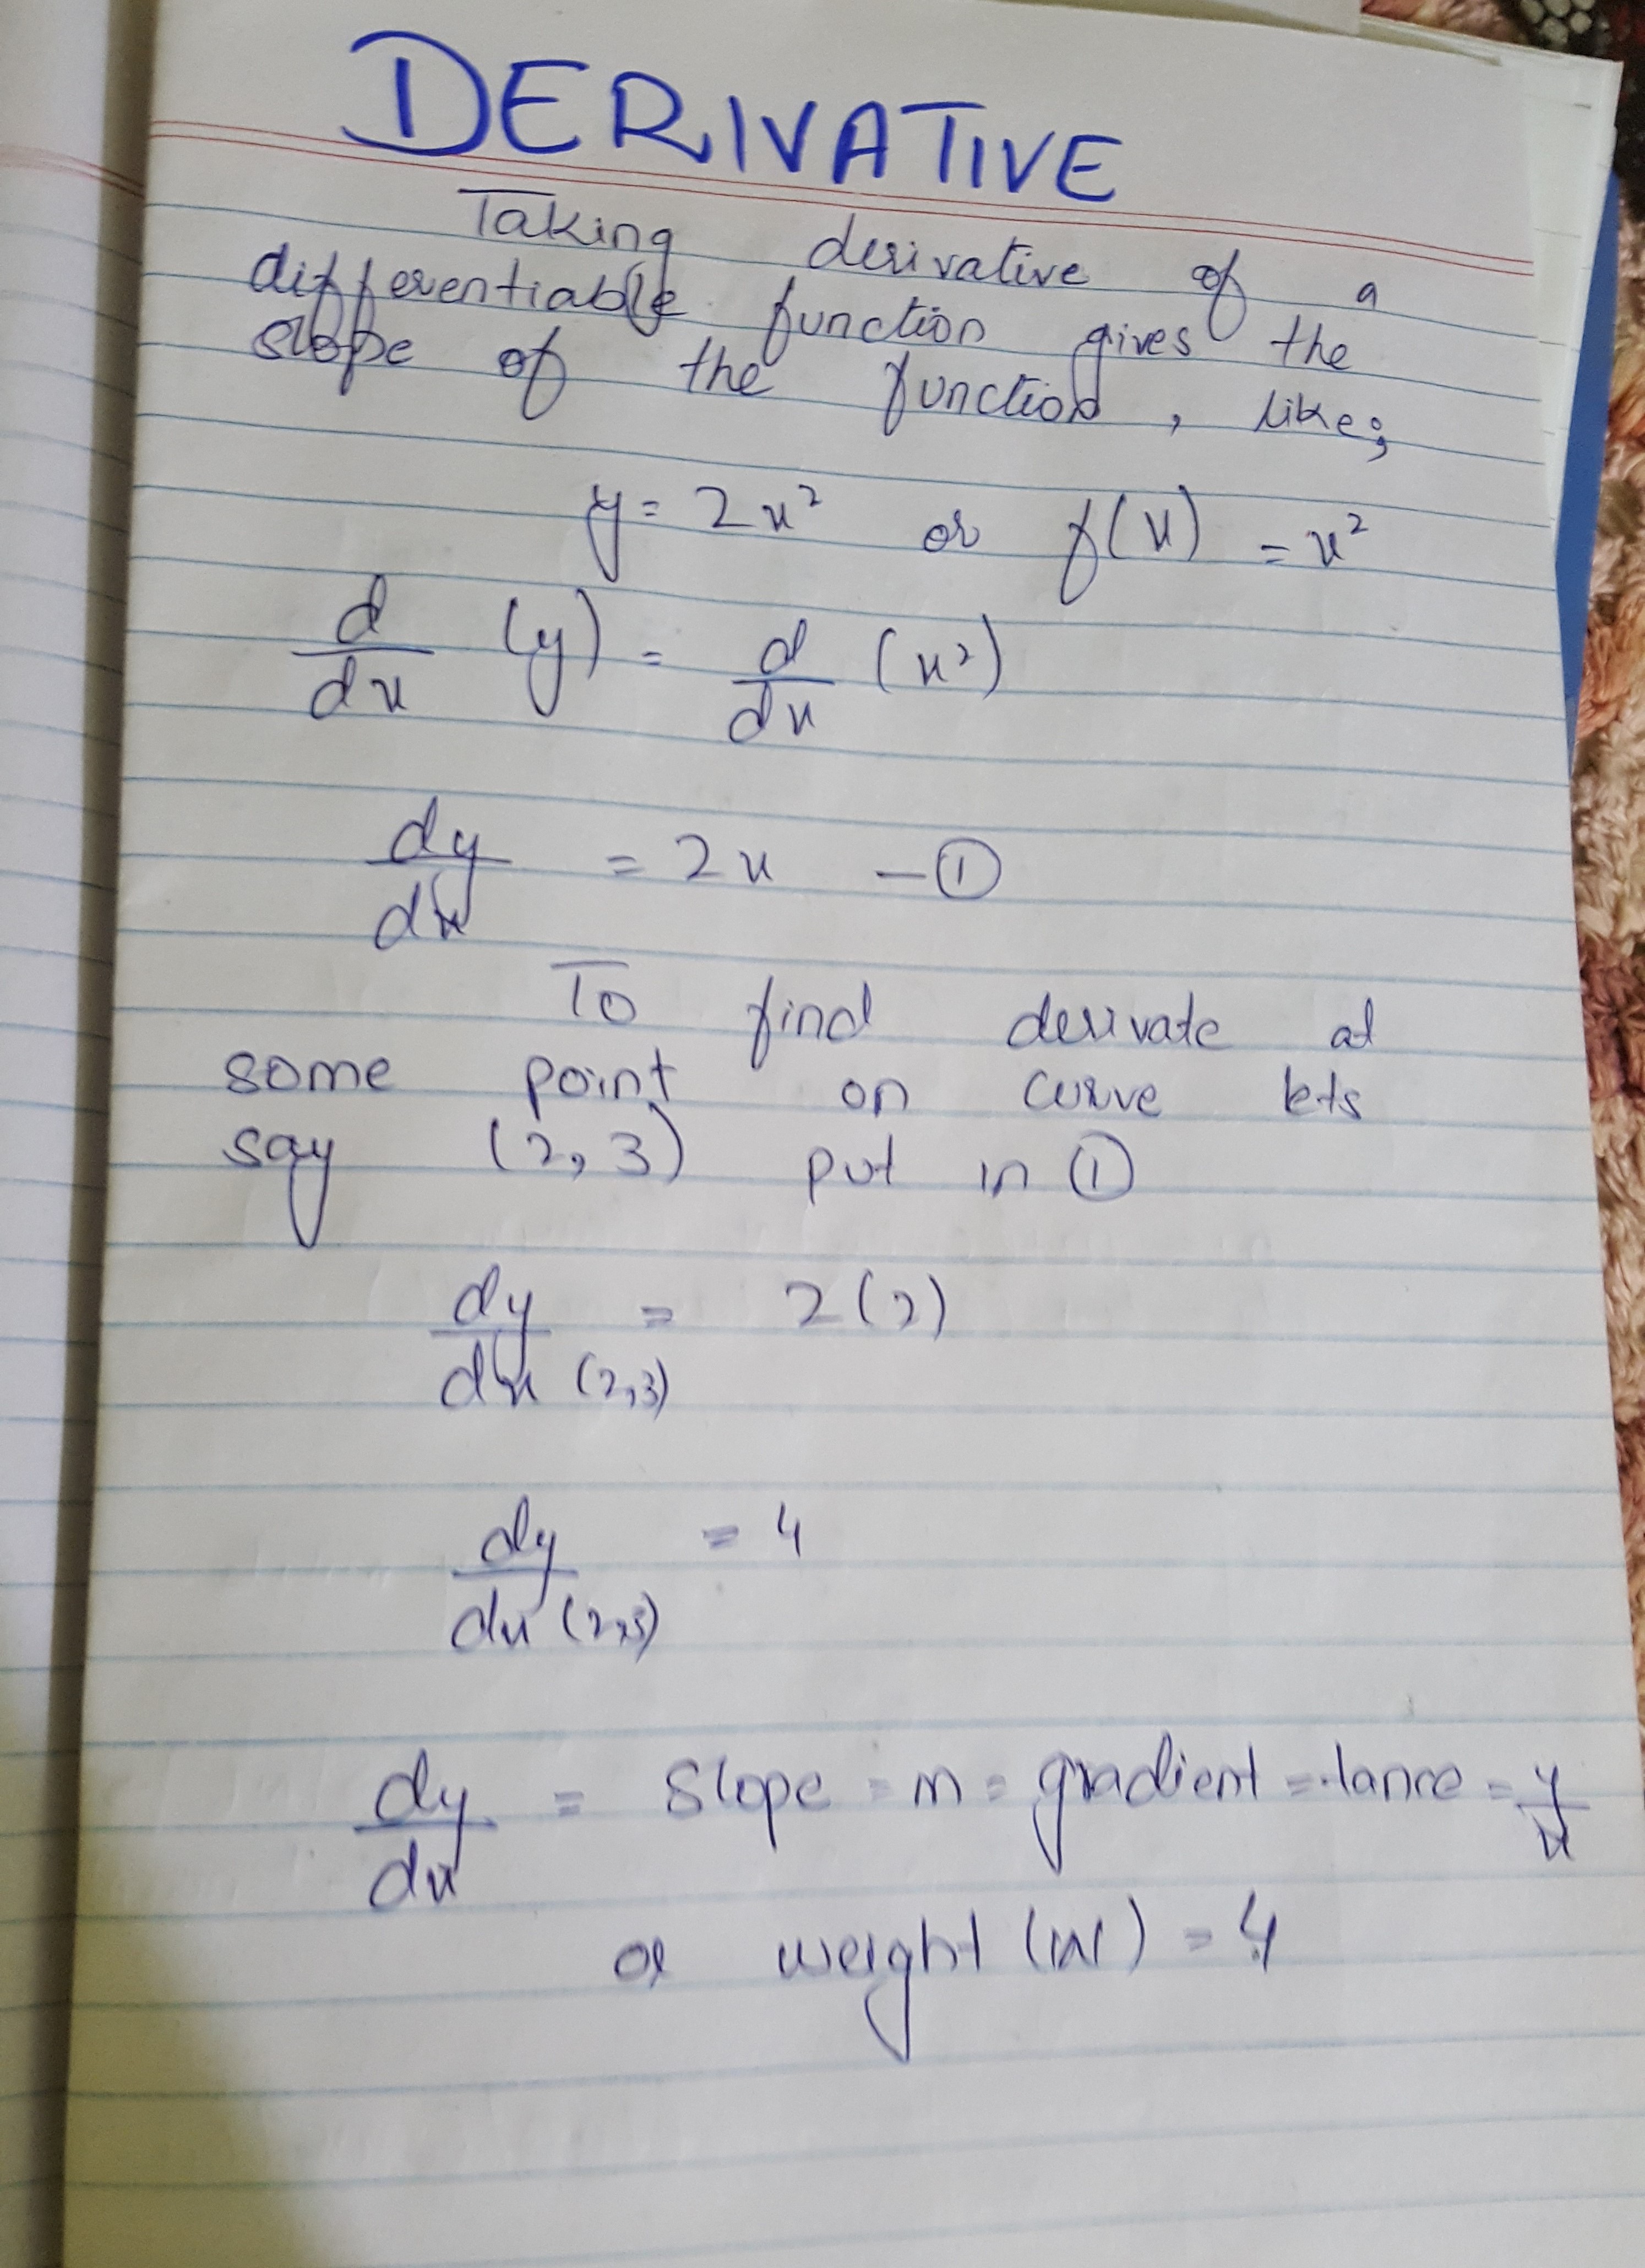 DERIVATIVE
Taking derivative of a
differentiable function gives the
slope of the function, like;
y = 2x² or f(x) = x²
d/dx (y) = d/dx (x²)
dy/dx = 2x — ①
To find derivate at
some point on curve lets
say (2,3) put in ①
dy/dx (2,3) = 2(2)
dy/dx (2,3) = 4
dy/dx = Slope = m = gradient = tanθ = y/x
or weight (w) = 4